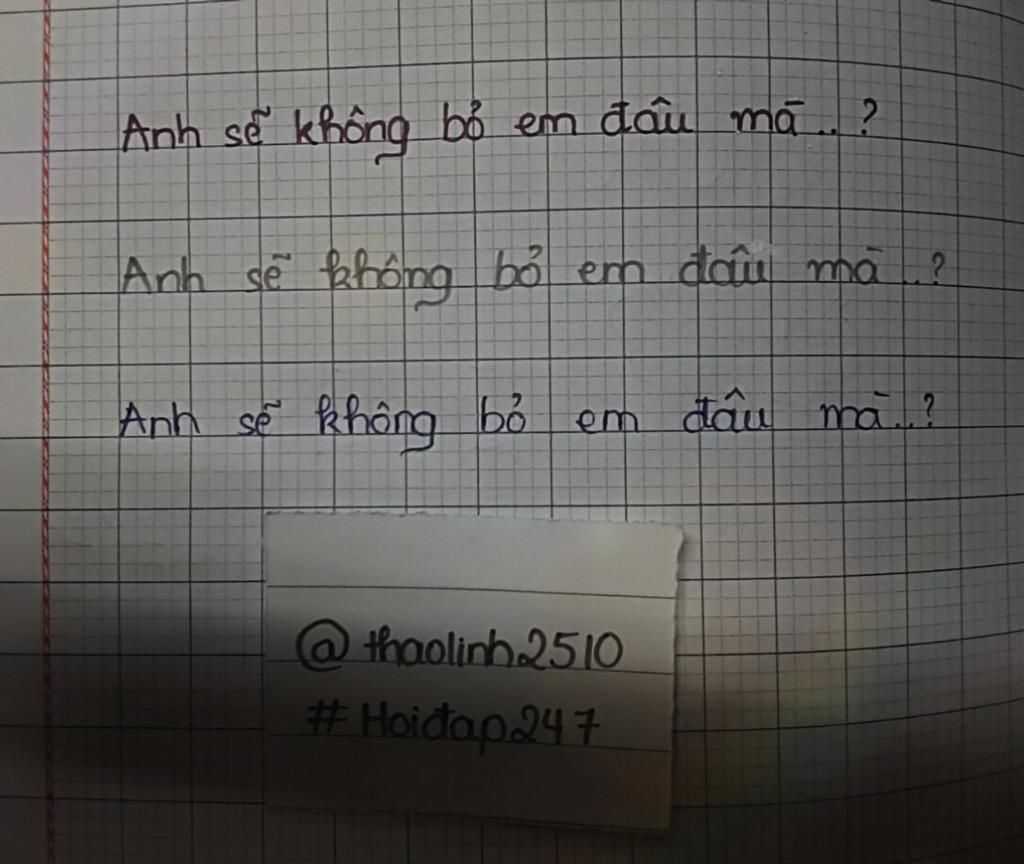 Anh sẽ không bỏ em đâu mà..?
Anh sẽ không bỏ em đâu mà..?
Anh sẽ không bỏ em đâu mà..?
@thaolinh2510
#Hoidap247